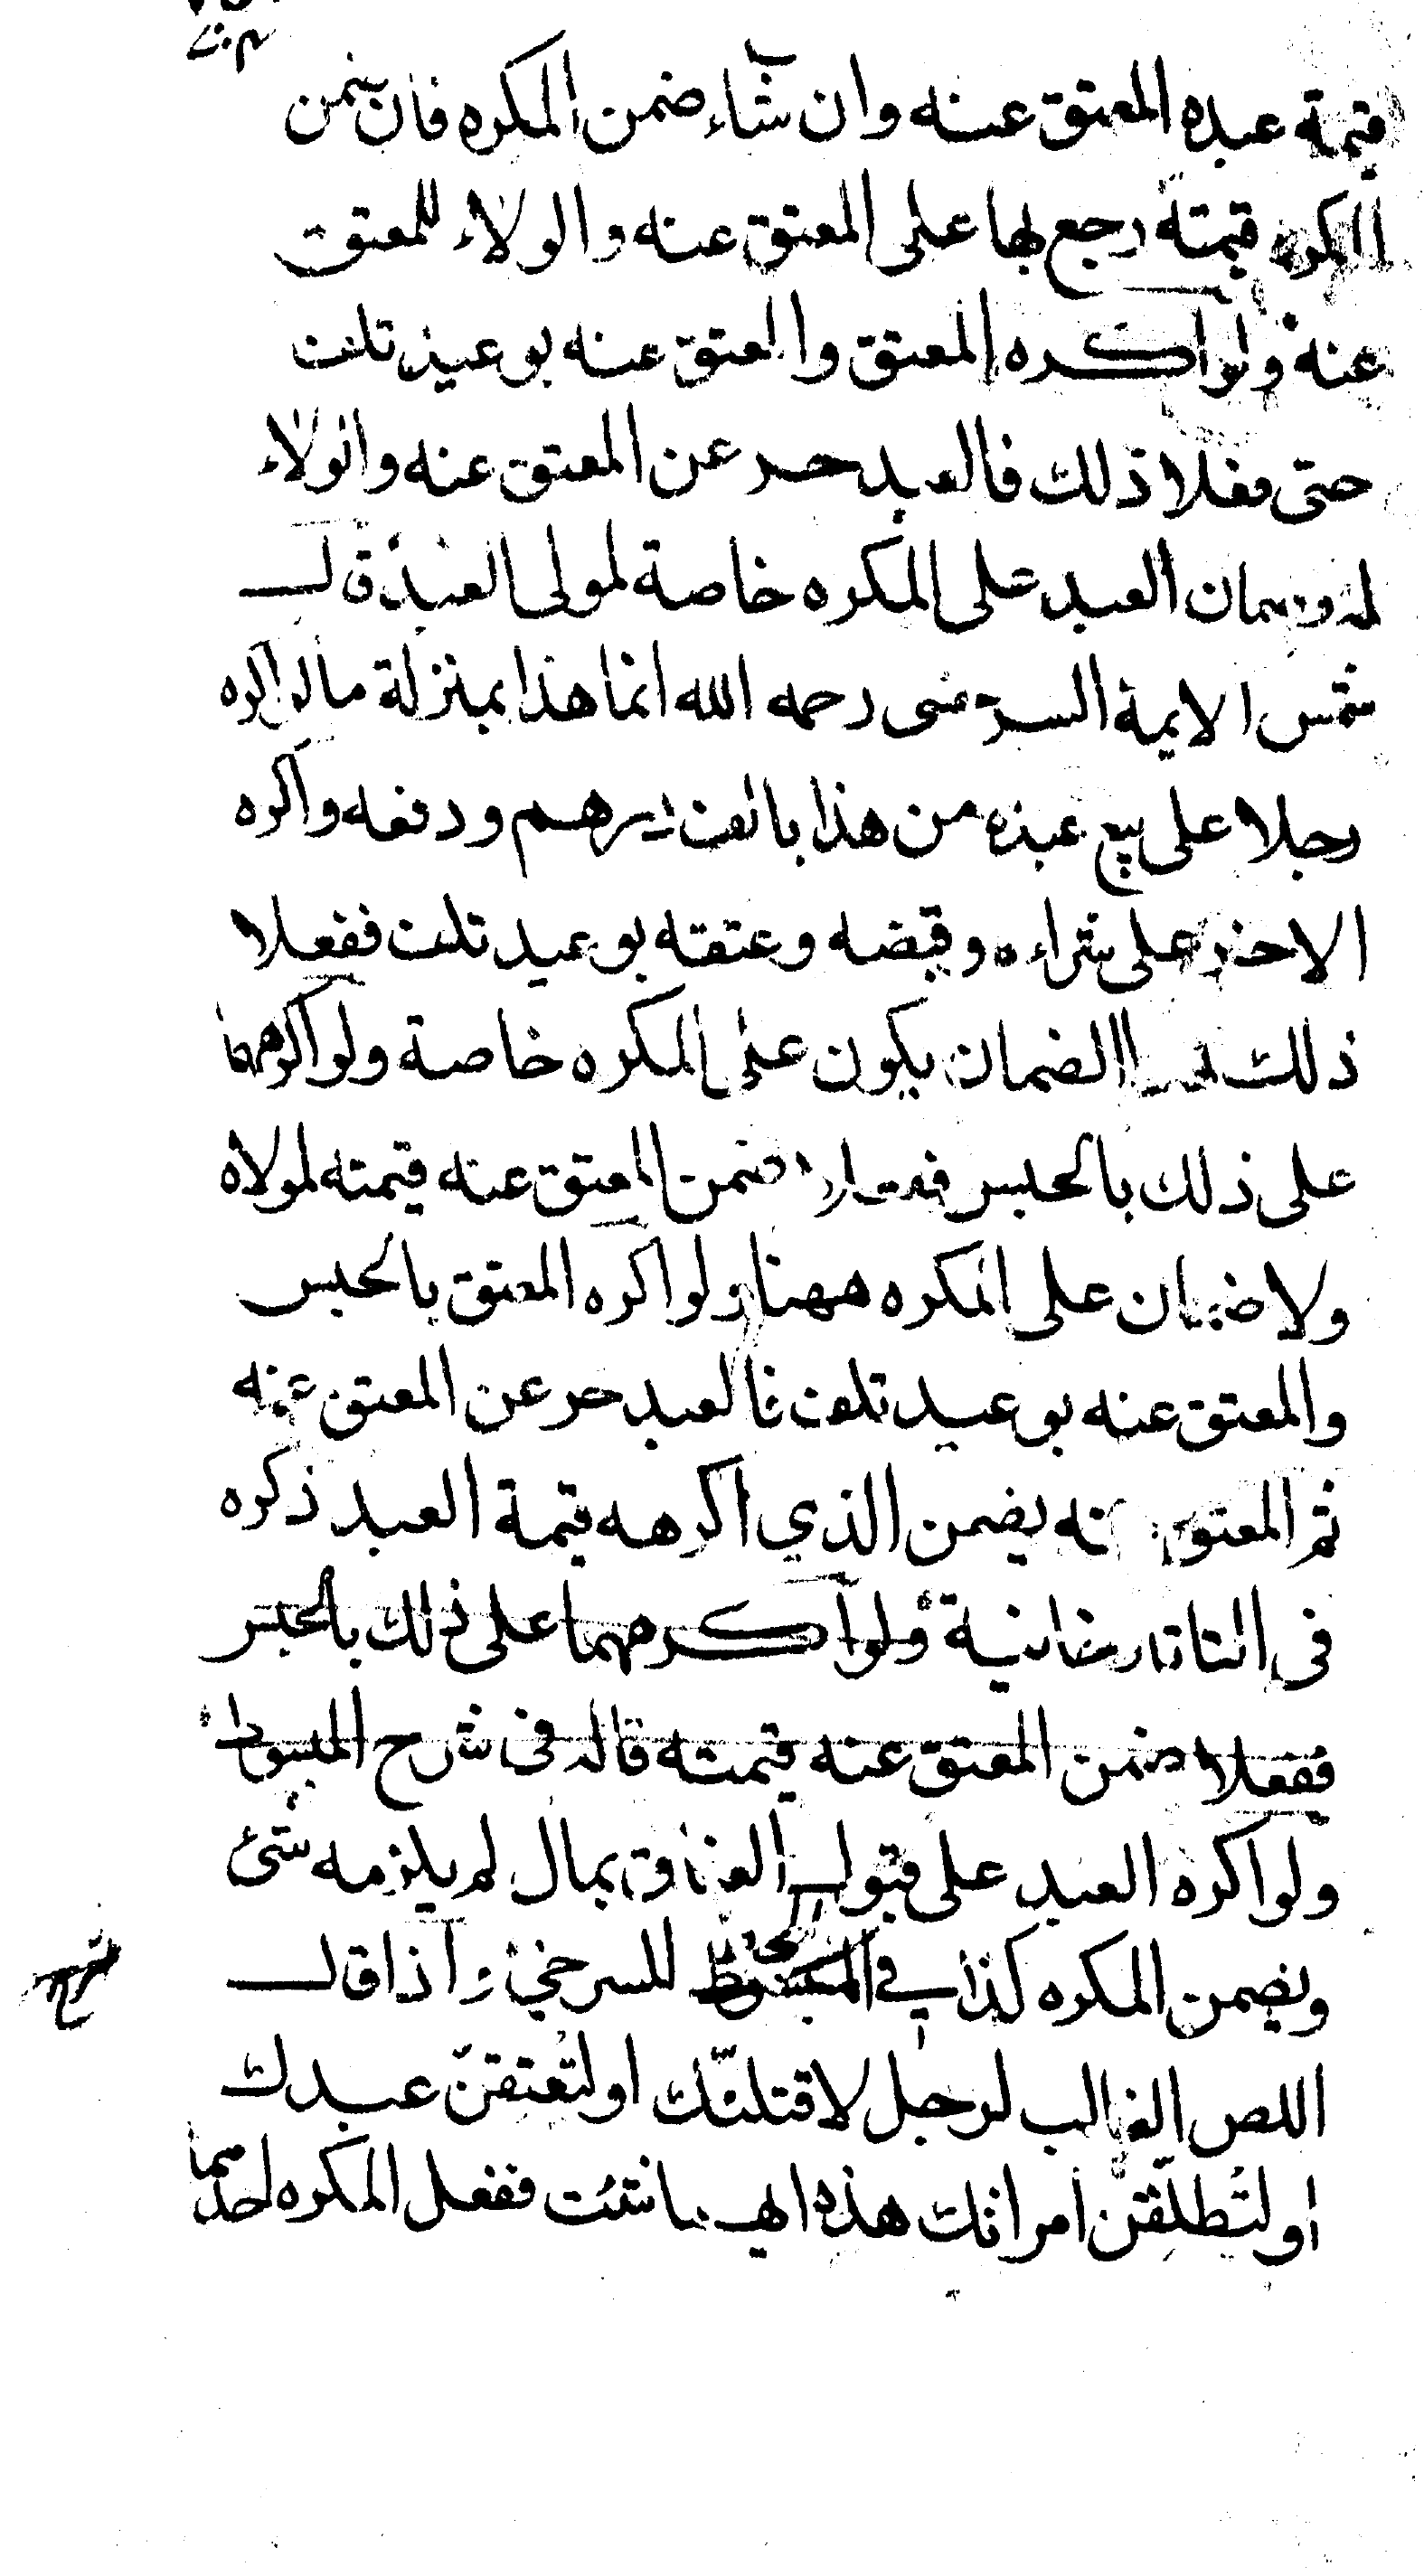 قيمة عبده المعتق عنه وان شاء ضمن المكره فان ضمن
المكره قيمته رجع بها على المعتق عنه والولاء للمعتق
عنه ولو اكره المعتق والمعتق عنه بوعيد تلف
حتى فعلا ذلك فالعبد حر عن المعتق عنه والولاء
له وضمان العبد على المكره خاصة لمولى العبد قال
شمس الايمة السرخسى رحمه الله انما هذا بمنزلة ما لو اكره
رجلا على بيع عبده من هذا بالف درهم ودفعه واكره
الاخر على شراءه وقبضه وعتقه بوعيد تلف ففعلا
ذلك الضمان يكون على المكره خاصة ولو اكرههما
على ذلك بالحبس ففعلا ضمن المعتق عنه قيمته لمولاه
ولا ضمان على المكره ههنا ولو اكره المعتق بالحبس
والمعتق عنه بوعيد تلف فالعبد حر عن المعتق عنه
ثم المعتق عنه يضمن الذي اكرهه قيمة العبد ذكره
فى التاتارخانية ولو اكرههما على ذلك بالحبس
ففعلا ضمن المعتق عنه قيمته قاله فى شرح المبسوط
ولو اكره العبد على قبول العتاق بمال لم يلزمه شئ
ويضمن المكره كذا في المحيط للسرخسي واذا قال
اللص الغالب لرجل لاقتلنّك او لتُعتقنّ عبدك
او لتُطلّقن امراتك هذه ايهما شئت ففعل المكره احدهما